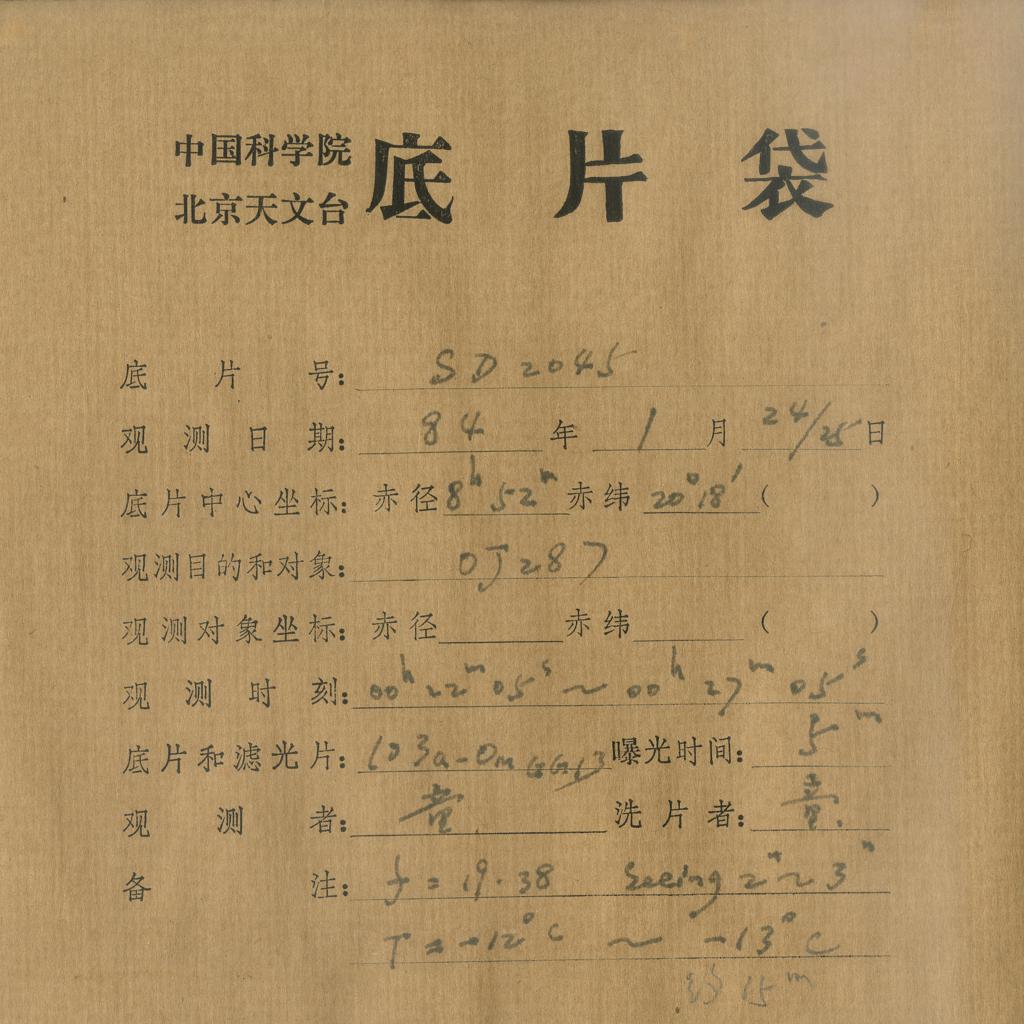 中国科学院
北京天文台
底片袋
底片号: SD 2045
观测日期: 84年1月24/25日
底片中心坐标: 赤径8h 52m赤纬20°18′( )
观测目的和对象: OJ287
观测对象坐标: 赤径 赤纬 ( )
观测时刻: 00h 22m 05s ~ 00h 27m 05s
底片和滤光片: 103a-Om GG13 曝光时间: 5m
观测者: 洗片者:
备注: f = 19.38 Seeing 2"~3"
T = -12°C ~ -13°C
15m